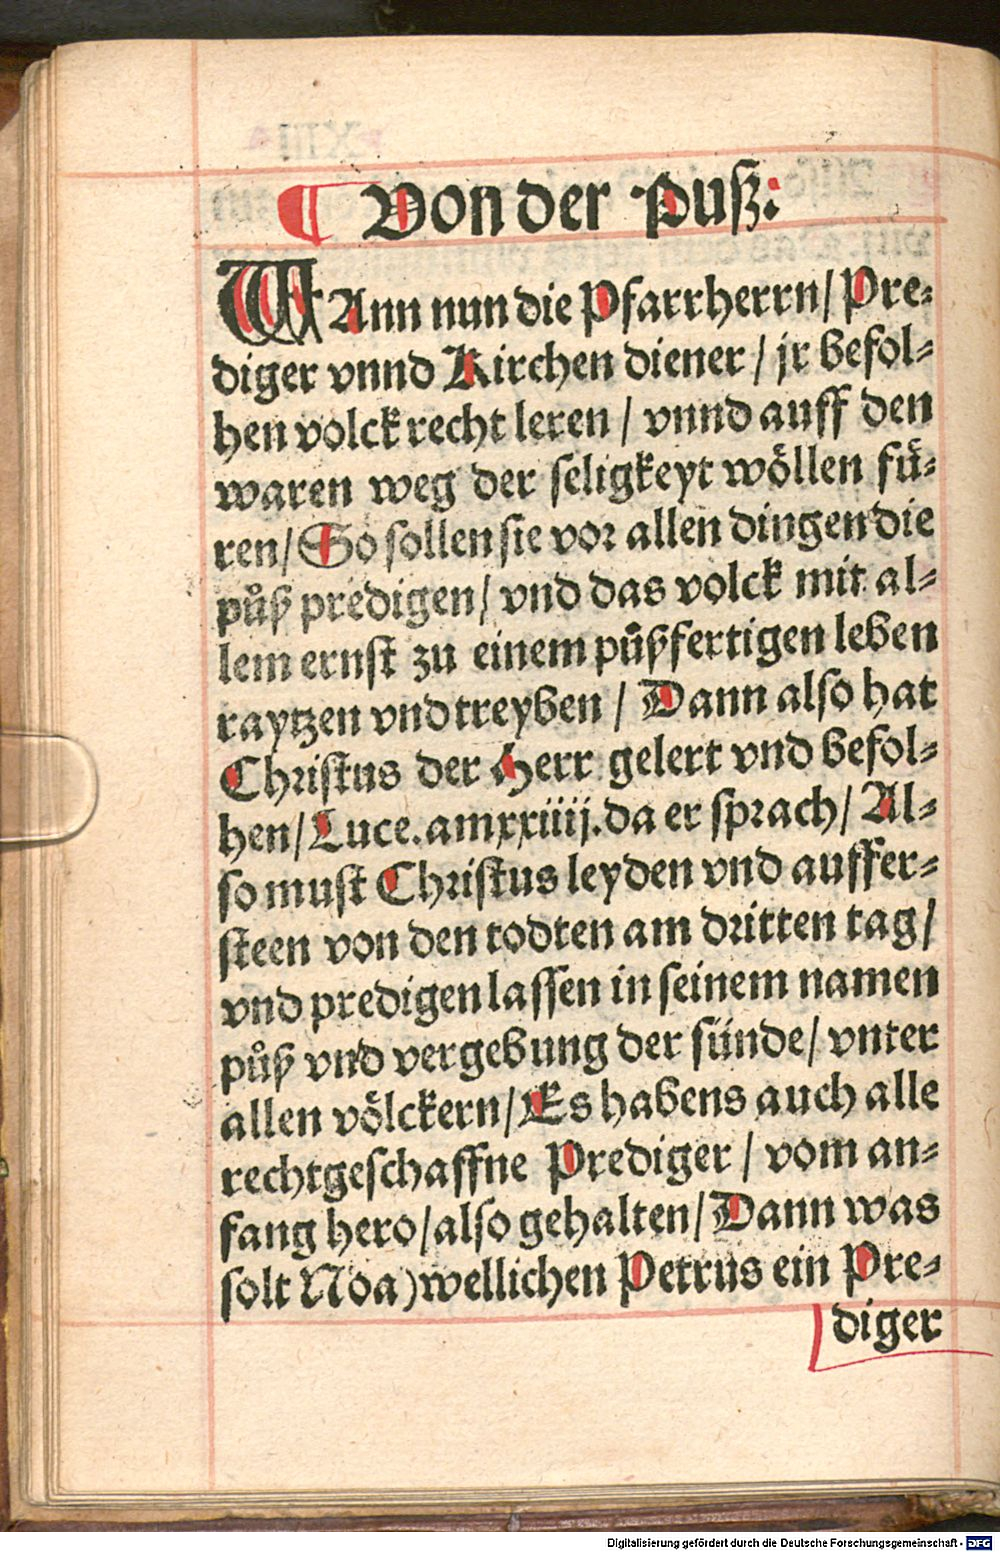 ¶ Von der Puß:
WAnn nun die Pfarrherrn/ Pre⸗
diger vnnd Kirchen diener / jr befol⸗
hen volck recht leren / vnnd auff den
waren weg der seligkeyt wöllen fü⸗
ren/ So sollen sie vor allen dingen die
půß predigen/ vnd das volck mit al⸗
lem ernst zu einem půßfertigen leben
raytzen vnd treyben / Dann also hat
Christus der Herr gelert vnd befol⸗
hen/ Luce. am xxiiij. da er sprach/ Al⸗
so must Christus leyden vnd auffer⸗
steen von den todten am dritten tag/
vnd predigen lassen in seinem namen
půß vnd vergebung der sünde/ vnter
allen völckern/ Es habens auch alle
rechtgeschaffne Prediger / vom an⸗
fang hero/ also gehalten/ Dann was
solt Noa) wellichen Petrus ein Pre⸗
diger
Digitalisierung gefördert durch die Deutsche Forschungsgemeinschaft - DFG